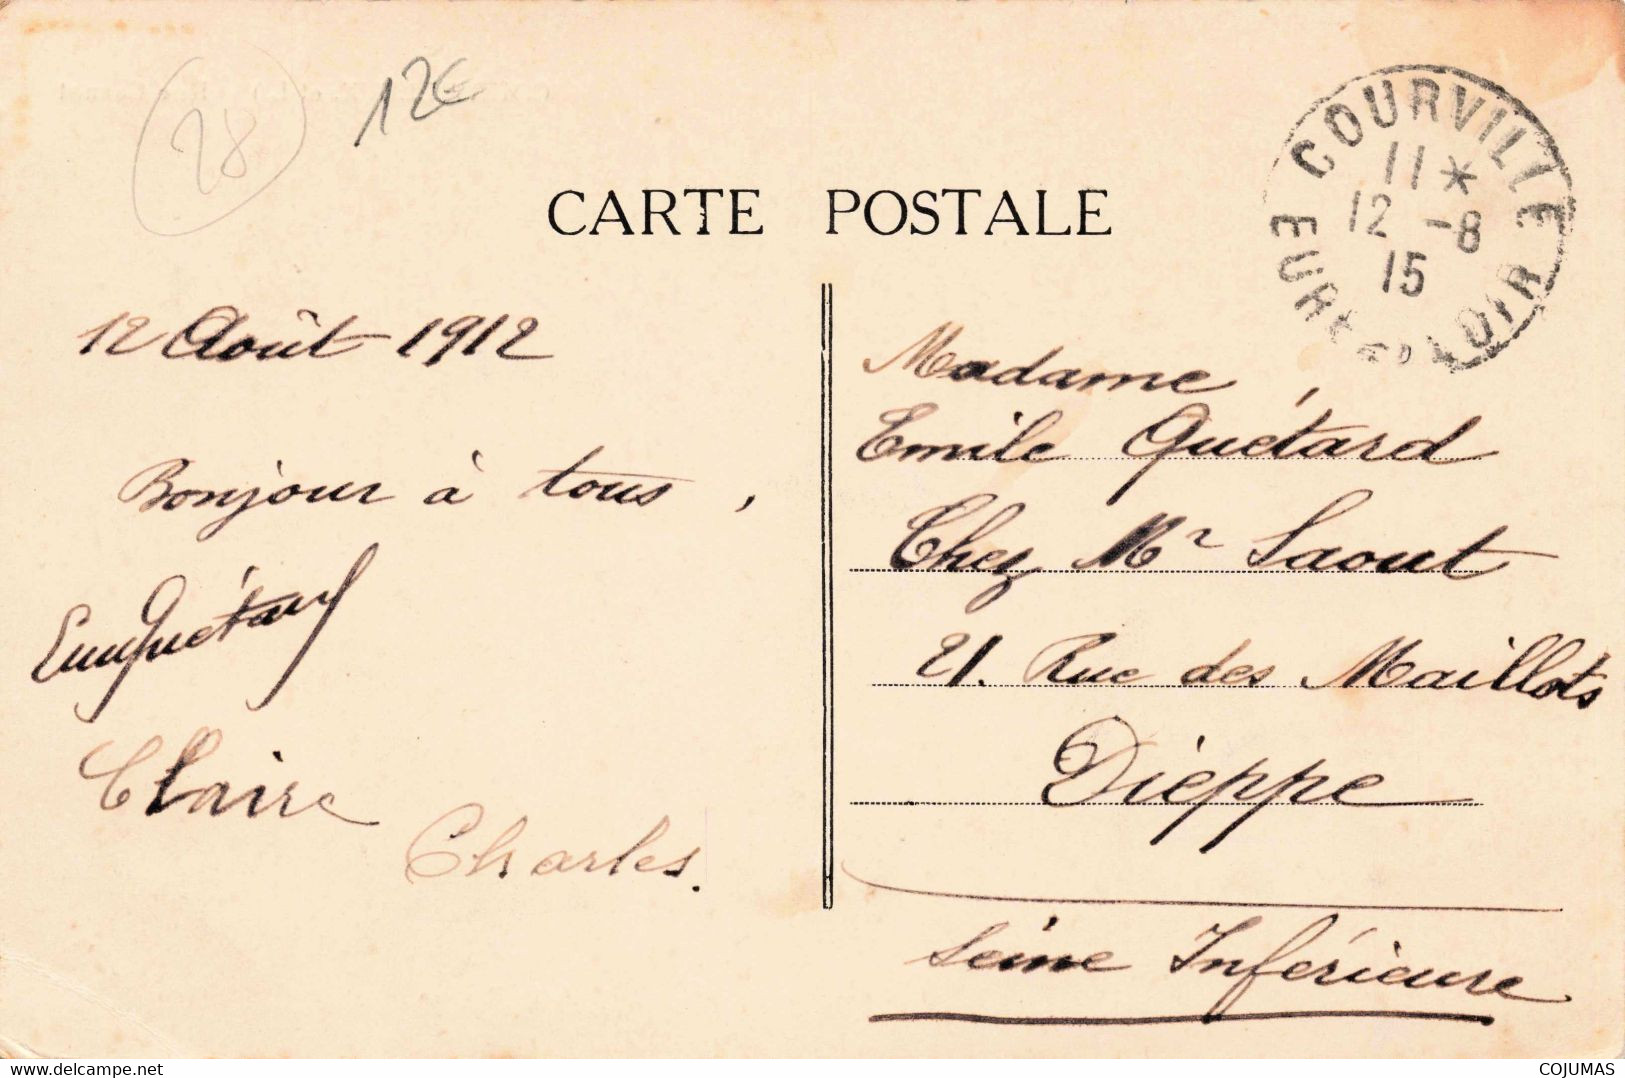 28
12€
CARTE POSTALE
COURVILLE
11 *
12 -8
15
EURE-ET-LOIR
12 Août 1912
Bonjour à tous,
Quétard
Claire
Charles.
Madame
Emile Quétard
Chez Mr Saout
21. Rue des Maillots
Dieppe
Seine Inférieure
delcampe.net
COJUMAS